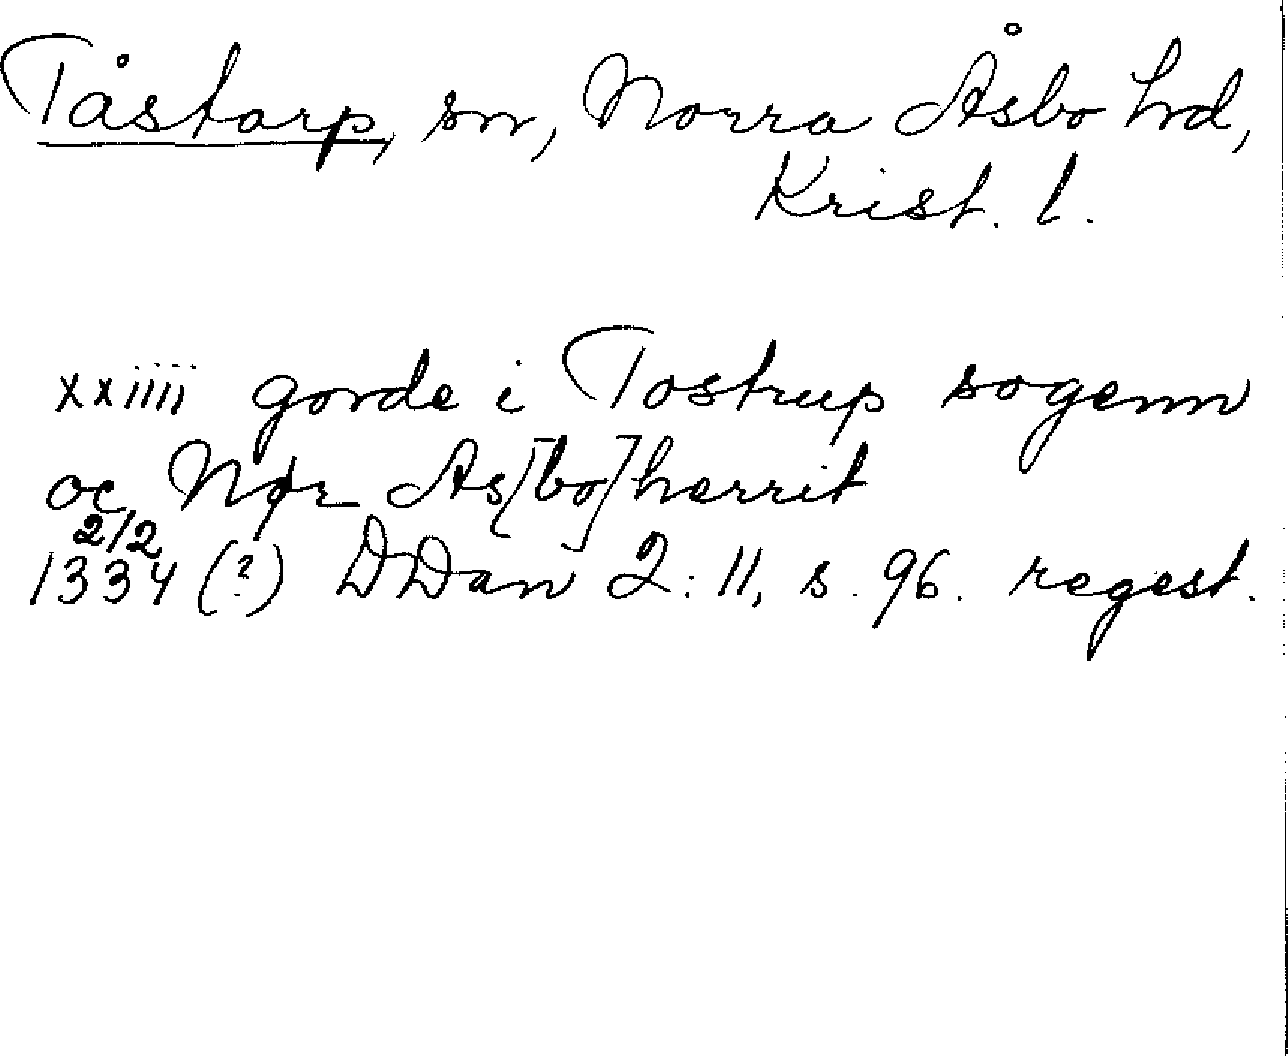 Tåstarp, sn, Norra Åsbo hd,
Krist. l.
xxiiii gorde i Tostrup sogenn
oc Nør As[bo]herrit
2/2
1334 (?) DDan 2:11, s. 96. regest.